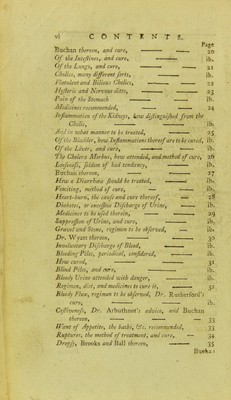 vi CONTENTS.
Page
Buchan thereon, and cure, 20
Of the Intestines, and cure, ib.
Of the Lungs, and cure, 21
Cholics, many different sorts, ib.
Flatulent and Bilious Cholics, 22
Hysteric and Nervous ditto, 23
Pain of the Stomach ib.
Medicines recommended, 24
Inflammation of the Kidneys, how distinguished from the
Cholic, ib.
And in what manner to be treated, 25
Of the Bladder, how Inflammations thereof are to be cured, ib.
Of the Liver, and cure, ib.
The Cholera Morbus, how attended, and method of cure, 26
Loosness, seldom of bad tendency, ib.
Buchan thereon, 27
How a Diarrhœa should be treated, ib.
Vomiting, method of cure, ib.
Heart-burn, the cause and cure thereof, 28
Diabetes, or excessive Discharge of Urine, ib.
Medicines to be used therein, 29
Suppression of Urine, and cure, ib.
Gravel and Stone, regimen to be observed, ib.
Dr. Wyatt thereon, 30
Involuntary Discharge of Blood, ib.
Bleeding Piles, periodical, considered, ib.
How cured, 31
Blind Piles, and cure, ib.
Bloody Urine attended with danger, ib.
Regimen, diet, and medicines to cure it, 32
Bloody Flux, regimen to be observed, Dr. Rutherford's
cure, ib.
Costiveness, Dr. Arbuthnot's advice, and Buchan
thereon, 33
Want of Appetite, the baths, &c. recommended, 33
Ruptures, the method of treatment, and cure, 34
Dropsy, Brooks and Ball thereon, 35